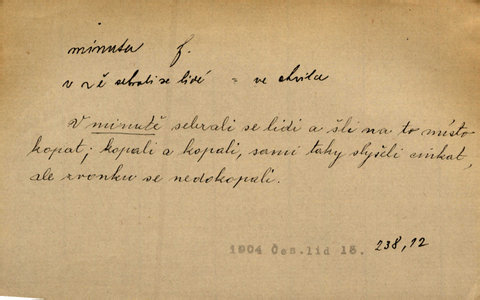 minuta f.
v ~ě sebrali se lidé = ve chvíli
V minutě sebrali se lidi a šli na to místo
kopat; kopali a kopali, sami taky slyšeli cinkat,
ale zvonku se nedokopali.
1904 Čes.lid 13. 238,12